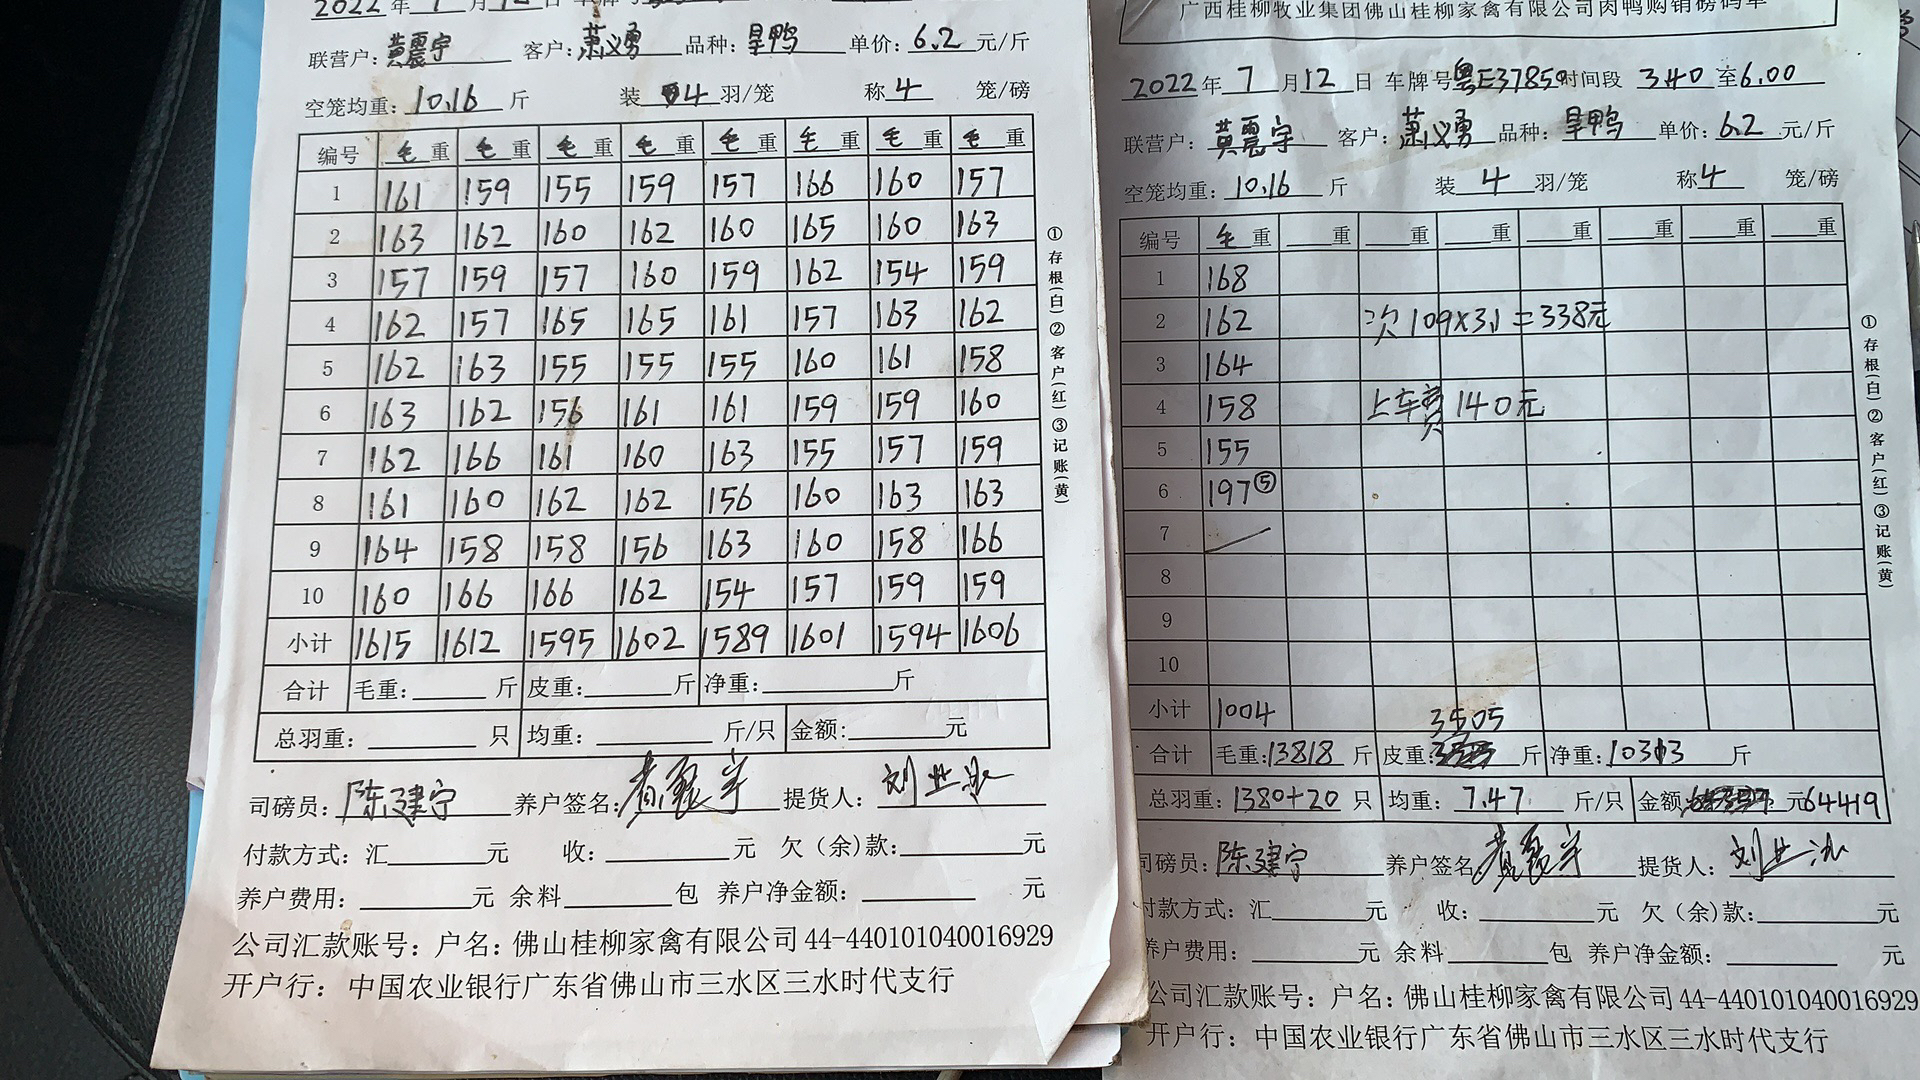 2022年7月12日 车牌号
联营户:黄震宇 客户:萧义勇 品种:旱鸭 单价:6.2元/斤
空笼均重:10.16斤 装4羽/笼 称4笼/磅
编号 毛重 毛重 毛重 毛重 毛重 毛重 毛重 毛重
1 161 159 155 159 157 166 160 157
2 163 162 160 162 160 165 160 163
3 157 159 157 160 159 162 154 159
4 162 157 165 165 161 157 163 162
5 162 163 155 155 155 160 161 158
6 163 162 156 161 161 159 159 160
7 162 166 161 160 163 155 157 159
8 161 160 162 162 156 160 163 163
9 164 158 158 156 163 160 158 166
10 160 166 166 162 154 157 159 159
小计 1615 1612 1595 1602 1589 1601 1594 1606
合计 毛重:斤 皮重:斤 净重:斤
总羽重:只 均重:斤/只 金额:元
司磅员:陈建宁 养户签名:黄震宇 提货人:刘业
付款方式:汇元 收:元 欠(余)款:元
养户费用:元 余料包 养户净金额:元
公司汇款账号:户名:佛山桂柳家禽有限公司44-440101040016929
开户行:中国农业银行广东省佛山市三水区三水时代支行
①存根(白)②客户(红)③记账(黄)
广西桂柳牧业集团佛山桂柳家禽有限公司肉鸭购销磅码单
2022年7月12日 车牌号粤E37850时间段 340至6.00
联营户:黄震宇 客户:萧义勇 品种:旱鸭 单价:6.2元/斤
空笼均重:10.16斤 装4羽/笼 称4笼/磅
编号 毛重 重 重 重 重 重 重 重
1 168
2 162 次109×3.1=338元
3 164
4 158 上车费140元
5 155
6 197⑤
7
8
9
10
小计 1004
3505
合计 毛重:13818斤 皮重:斤 净重:10313斤
总羽重:1380+20只 均重:7.47斤/只 金额:元64419
司磅员:陈建宁 养户签名:黄震宇 提货人:刘业
付款方式:汇元 收:元 欠(余)款:元
养户费用:元 余料包 养户净金额:元
公司汇款账号:户名:佛山桂柳家禽有限公司44-440101040016929
开户行:中国农业银行广东省佛山市三水区三水时代支行
①存根(白)②客户(红)③记账(黄)